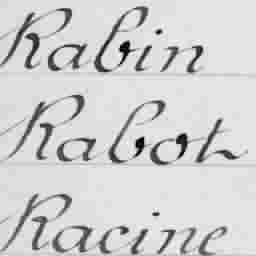 Rabin
Rabot
Racine